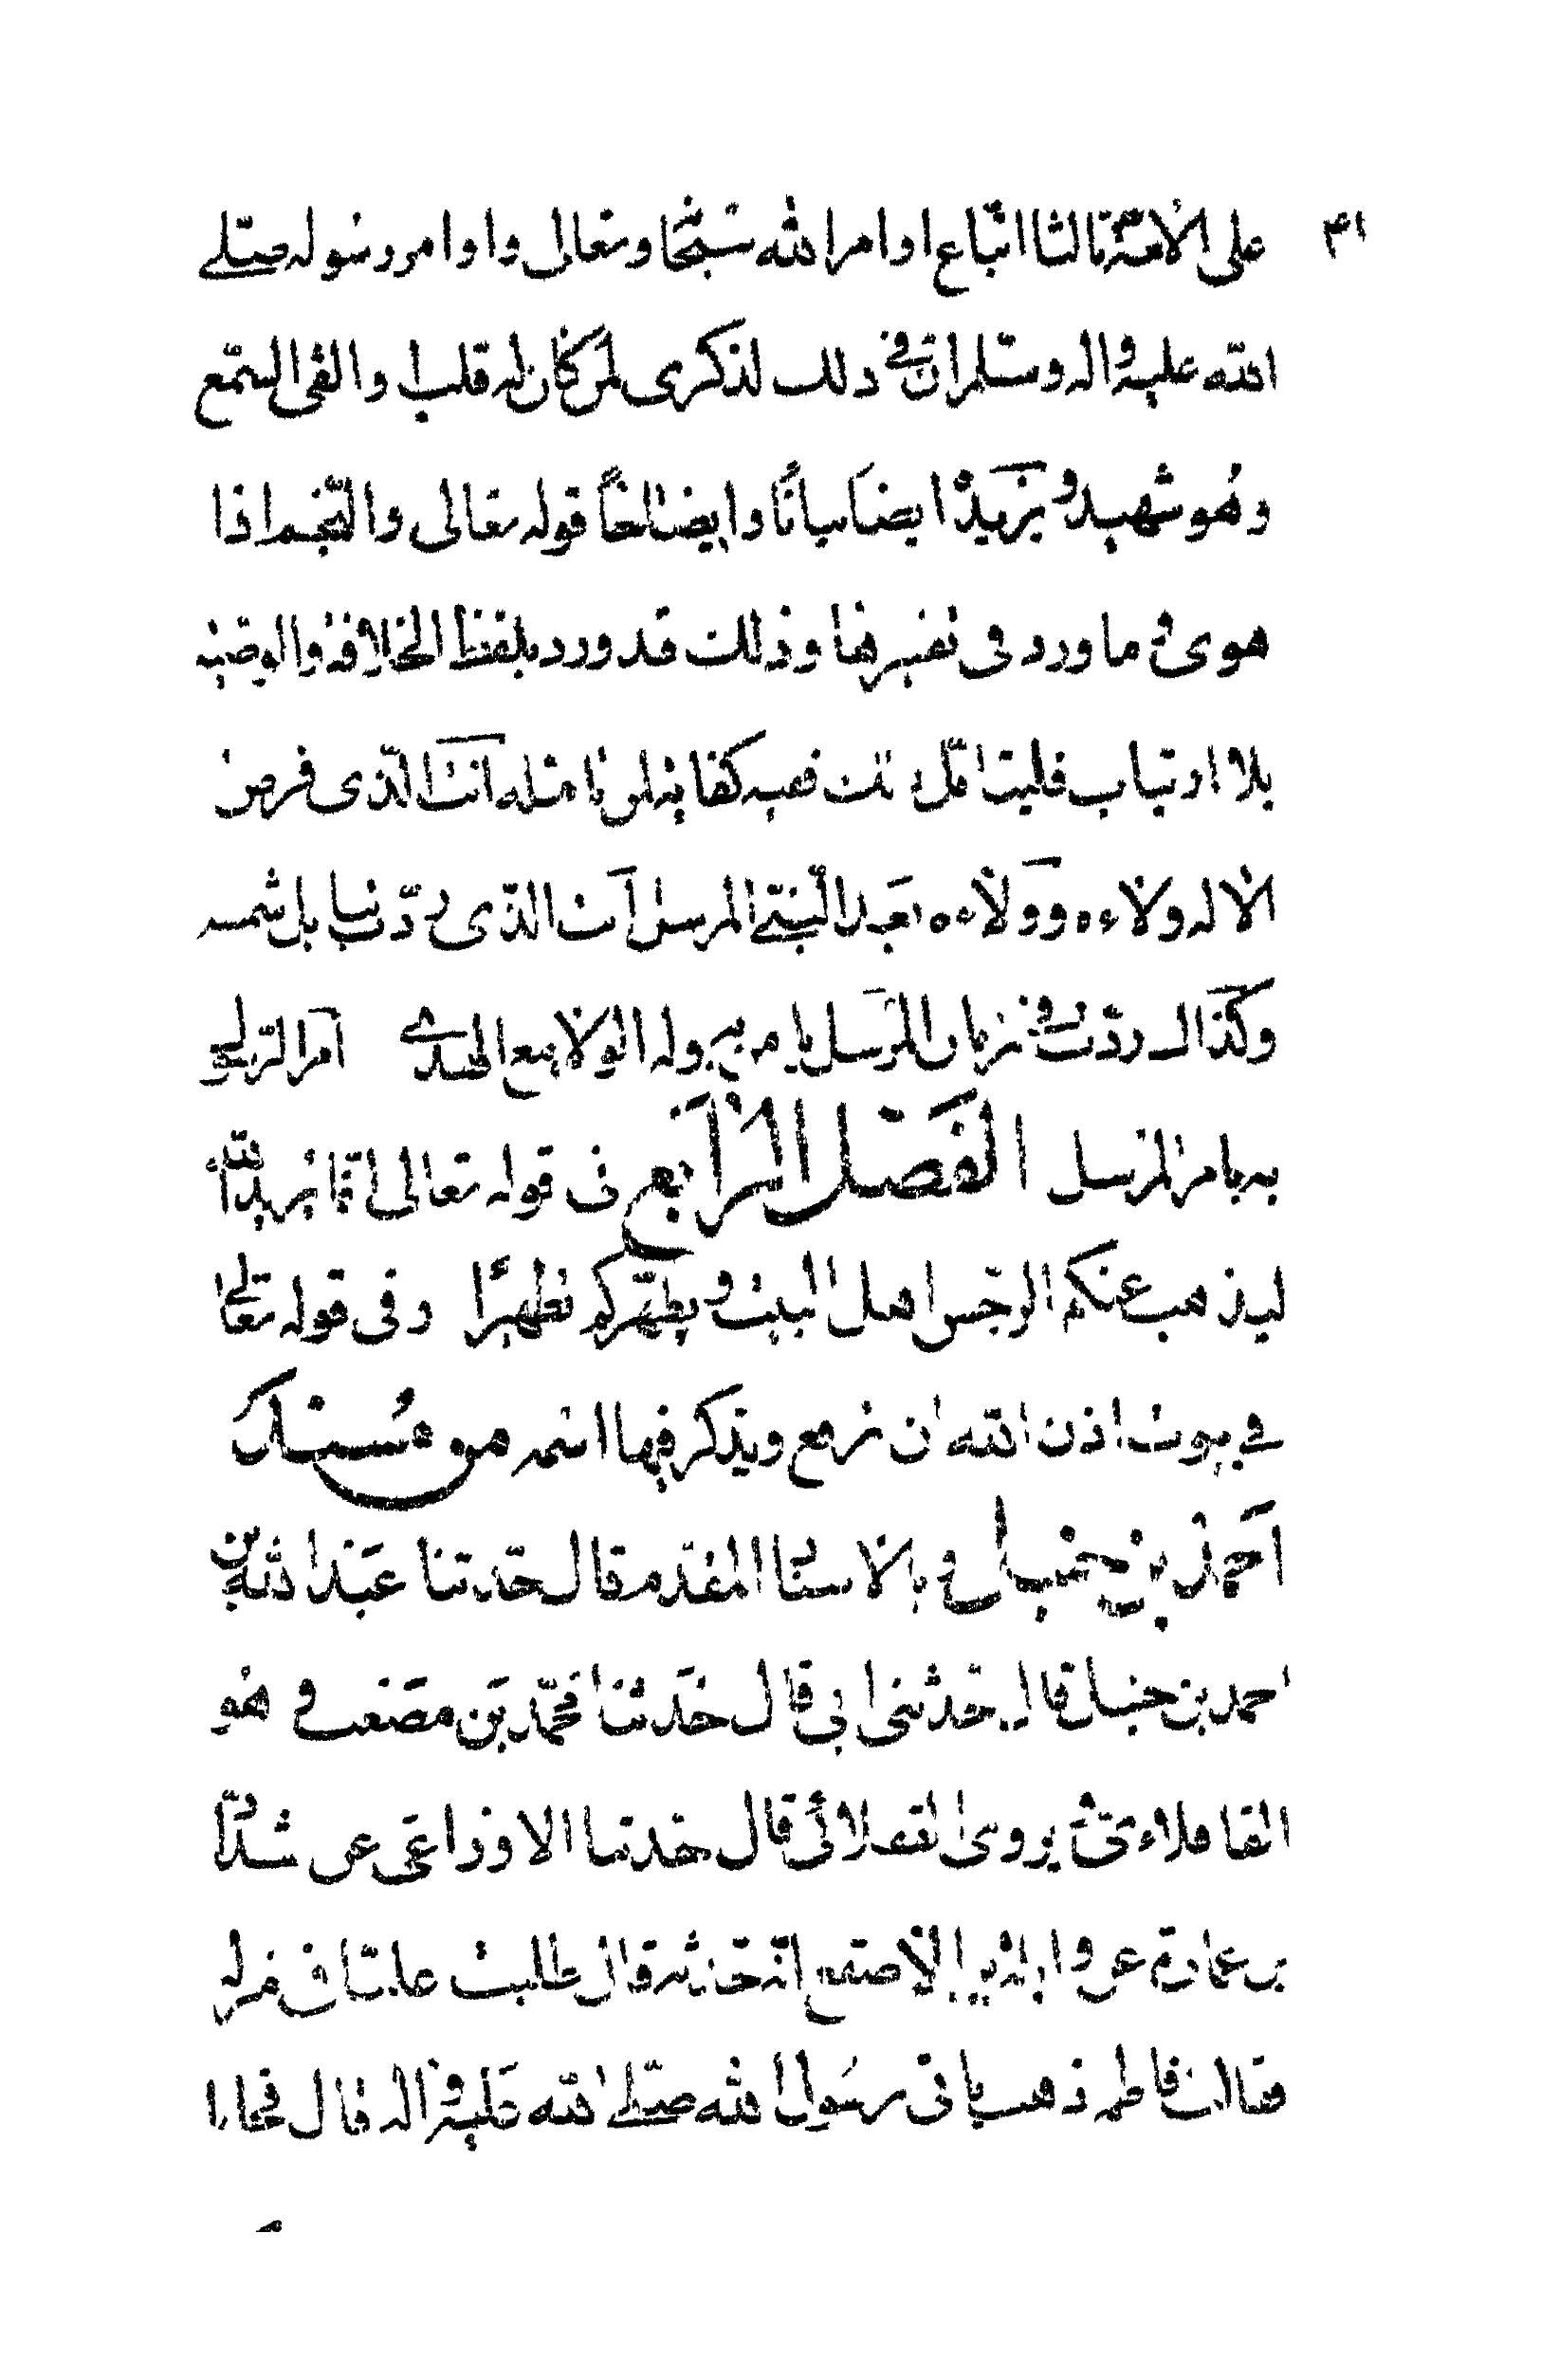 على الامة ثالثا اتباع اوامر الله سبحانه وتعالى واوامر رسوله صلى ١٤
الله عليه واله وسلم ان فى ذلك لذكرى لمن كان له قلب او القى السمع
وهو شهيد ويزيده ايضا بيانا وايضاحا قوله تعالى والنجم اذا
هوى وما ورد فى تفسيرها وذلك قد ورد بلفظ الخلافة والوصية
بلا ارتياب فليتامل ذلك ففيه كفاية لمن تامله انت الذى فرض
الاله ولاءه وولاءه بعد النبى المرسل انت الذى ردت بيابل شمسه
وكذاك ردت فى زمان المرسل يا من به وله الولا مع الهدى امر النبى
به بامر المرسل الفصل الرابع فى قوله تعالى انما يريد الله
ليذهب عنكم الرجس اهل البيت ويطهركم تطهيرا وفى قوله تعالى
فى بيوت اذن الله ان ترفع ويذكر فيها اسمه من مسند
احمد بن حنبل وبالاسناد المقدم قال حدثنا عبد الله بن
احمد بن حنبل قال حدثنى ابى قال حدثنا محمد بن مصعب وهو
القافلاءى ويروى القفلائى قال حدثنا الاوزاعى عن شداد
بن عمارة عن واثلة بن الاصقع انه حدثه قال طلبت عليا فى منزله
فقالت فاطمه ذهب ياتى رسول الله صلى الله عليه واله قال فجاءا